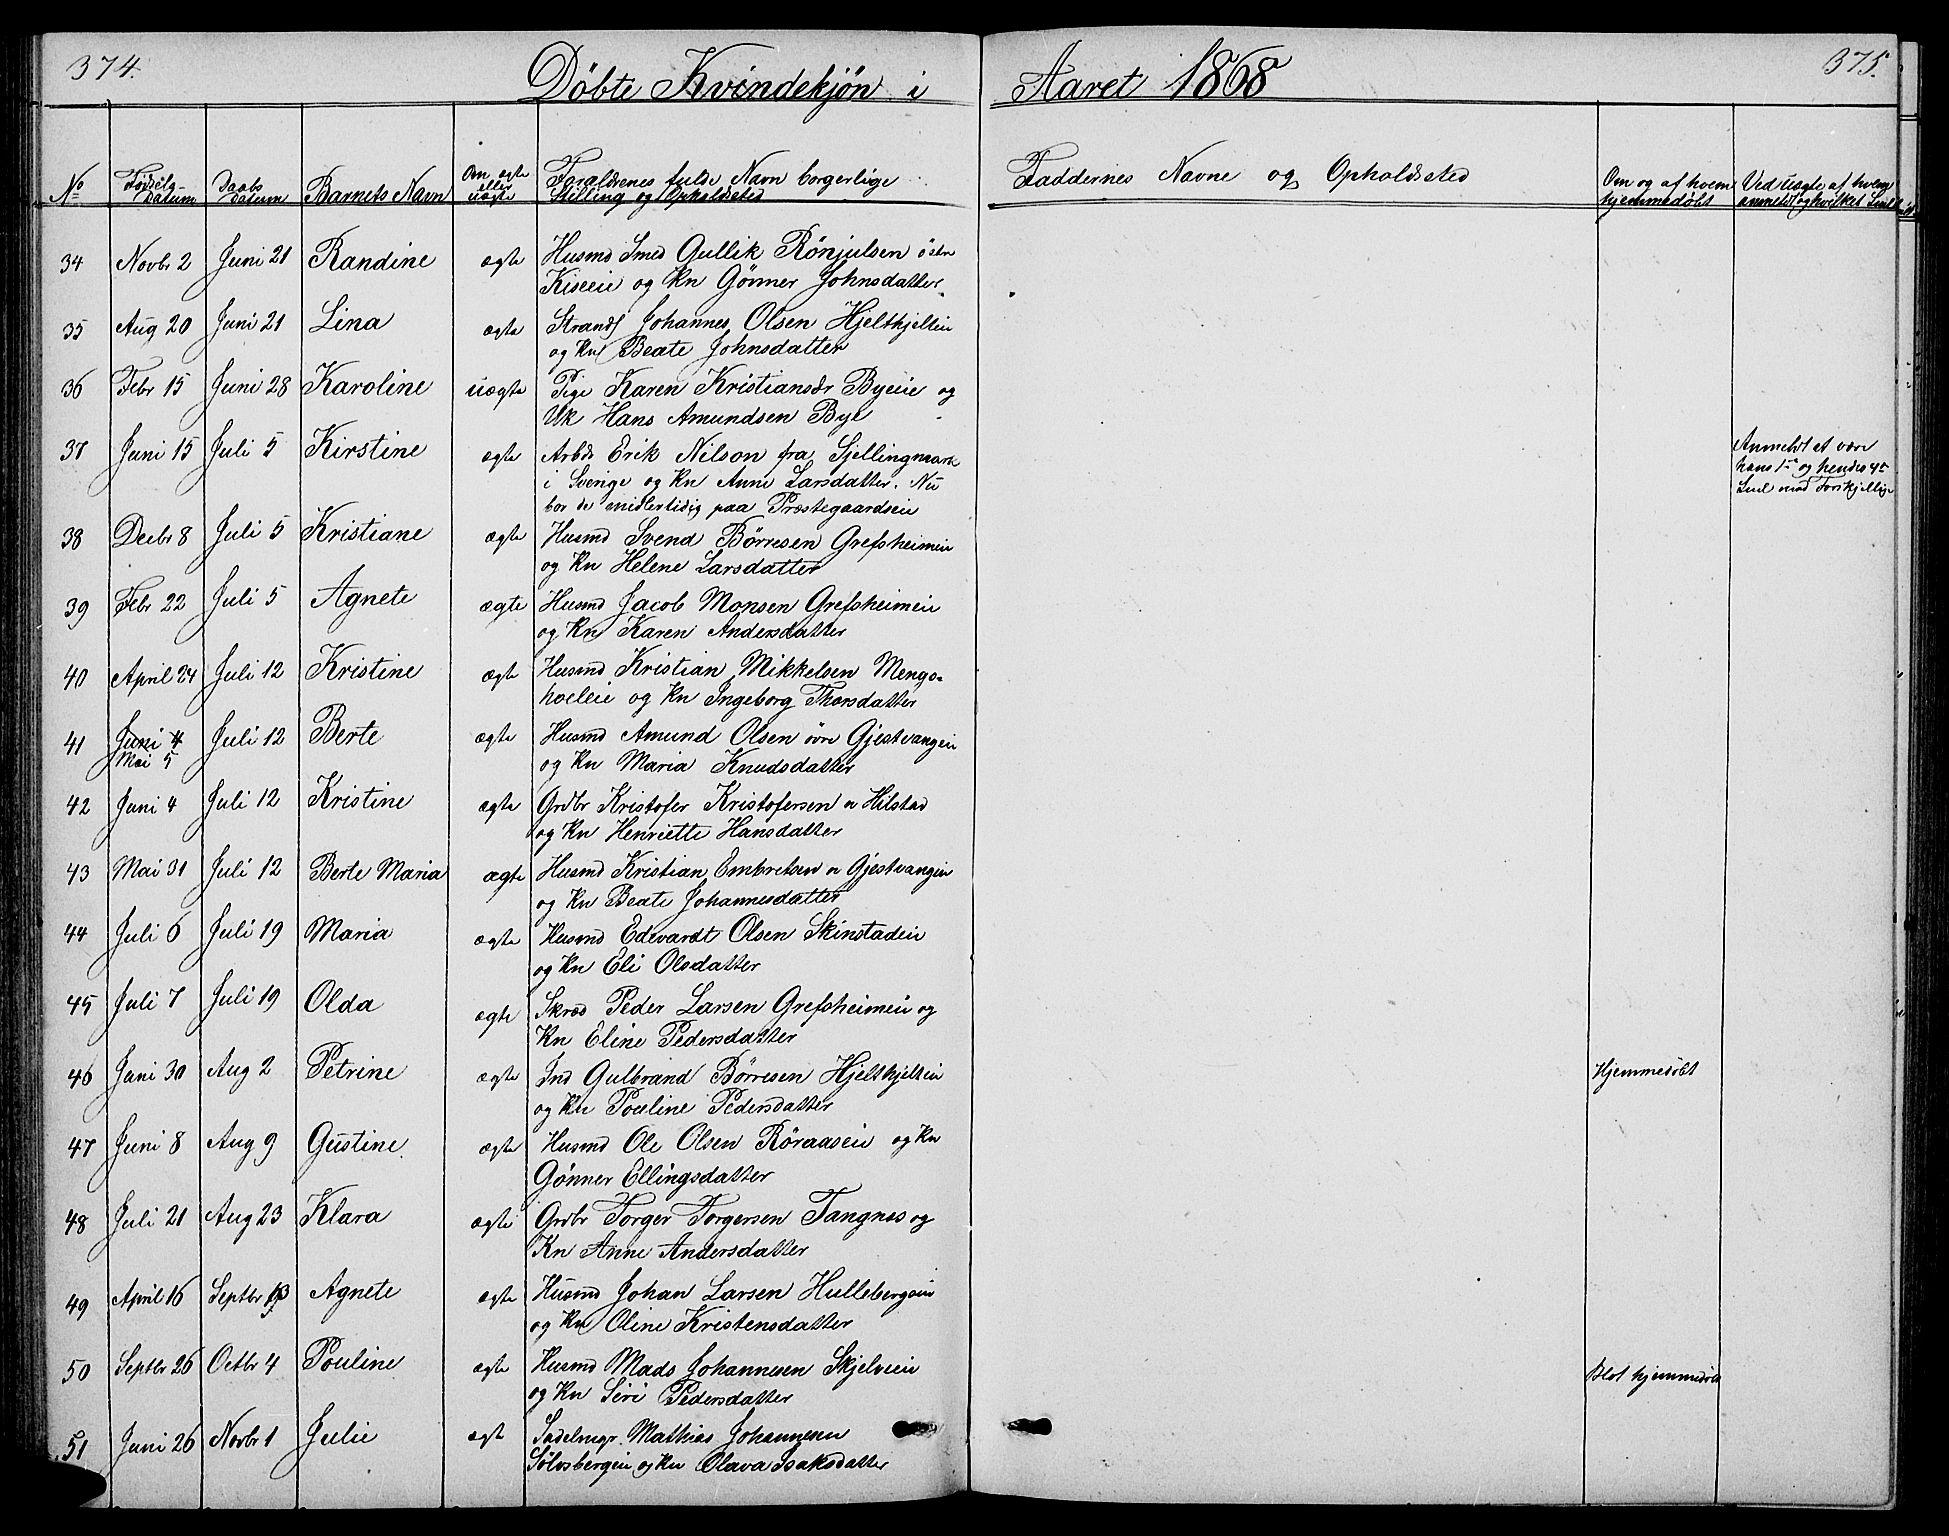 374.
375.
Döbte Kvindekjön i Aaret 1868
No
Födsels Datum
Daabs Datum
Barnets Navn
Om ægte eller uægte
Foraldrenes fulde Navn borgerlige Stilling og Opholdsted
Faddernes Navne og Opholdsted
Om og af hvem hjemmedöbt
Ved uægte af hvem anmeldt og hvilket Leil
34 Novbr 2 Juni 21 Randine ægte Husmd Smed Gullik Rönjulsen östre
Kiseeie og Kn Gönner Johnsdatter
35 Aug 20 Juni 21 Lina ægte Strands Johannes Olsen Hjeltkjelleie
og Kn Beate Johnsdatter
36 Febr 15 Juni 28 Karoline uægte Pige Karen Kristiansdr Byeie og
Uk Hans Amundsen Bye
37 Juni 15 Juli 5 Kirstine ægte Arbds Erik Nilson fra Sjellingmark
i Sverige og Kn Anne Larsdatter. Nu
bor de midlertidig paa Præstegaardseie
Anmeldt at være
hans 1ste og hendes 4de
Leil med Forskjellige
38 Decbr 8 Juli 5 Kristiane ægte Husmd Svend Börresen Grefsheimeie
og Kn Helene Larsdatter
39 Febr 22 Juli 5 Agnete ægte Husmd Jacob Monsen Grefsheimeie
og Kn Karen Andersdatter
40 April 24 Juli 12 Kristine ægte Husmd Kristian Mikkelsen Mengs-
hoeleie og Kn Ingeborg Thorsdatter
41 Juni 4 Juli 12 Berte ægte Husmd Amund Olsen övre Gjestvangeie
Mai 5 og Kn Maria Knudsdatter
42 Juni 4 Juli 12 Kristine ægte Grdbr Kristofer Kristofersen n Hilstad
og Kn Henriette Hansdatter
43 Mai 31 Juli 12 Berte Maria ægte Husmd Kristian Embretsen n Gjestvangeie
og Kn Beate Johannesdatter
44 Juli 6 Juli 19 Maria ægte Husmd Edevardt Olsen Skinstadeie
og Kn Eli Olsdatter
45 Juli 7 Juli 19 Olda ægte Skræd Peder Larsen Grefsheimeie og
Kn Eline Pedersdatter
46 Juni 30 Aug 2 Petrine ægte Ind Gulbrand Börresen Hjeltkjelteie Hjemmedöbt
og Kn Pouline Pedersdatter
47 Juni 8 Aug 9 Gustine ægte Husmd Ole Olsen Röraaseie og Kn
Gönner Ellingsdatter
48 Juli 21 Aug 23 Klara ægte Grdbr Torger Torgersen Tangnes og
Kn Anne Andersdatter
49 April 16 Septbr 13 Agnete ægte Husmd Johan Larsen Hullebergeie
og Kn Oline Kristensdatter
50 Septbr 26 Octbr 4 Pouline ægte Husmd Mads Johannesen Skjelveie Blot hjemmedöbt
og Kn Siri Pedersdatter
51 Juni 26 Novbr 1 Julie ægt Sadelmgr. Mathias Johannesen
Sölvsbergeie og Kn Olava Isaksdatter